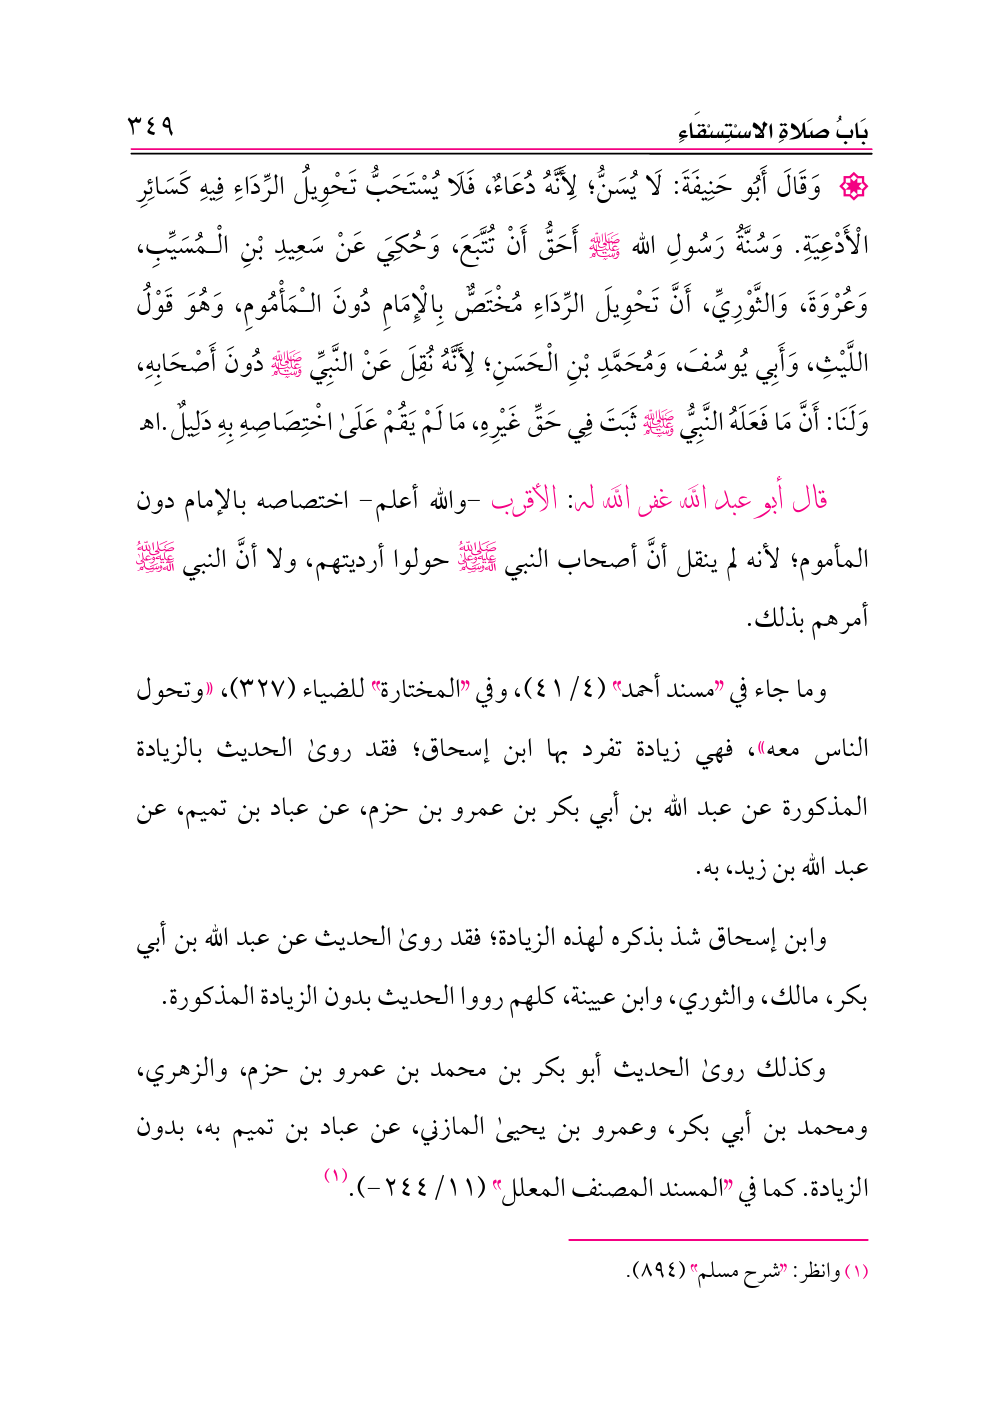 بَابُ صَلاةِ الاسْتِسْقَاءِ ٣٤٩
وَقَالَ أَبُو حَنِيفَةَ: لَا يُسَنُّ؛ لِأَنَّهُ دُعَاءٌ، فَلَا يُسْتَحَبُّ تَحْوِيلُ الرِّدَاءِ فِيهِ كَسَائِرِ
الْأَدْعِيَةِ. وَسُنَّةُ رَسُولِ الله ﷺ أَحَقُّ أَنْ تُتَّبَعَ، وَحُكِيَ عَنْ سَعِيدِ بْنِ الْـمُسَيِّبِ،
وَعُرْوَةَ، وَالثَّوْرِيِّ، أَنَّ تَحْوِيلَ الرِّدَاءِ مُخْتَصٌّ بِالْإِمَامِ دُونَ الْـمَأْمُومِ، وَهُوَ قَوْلُ
اللَّيْثِ، وَأَبِي يُوسُفَ، وَمُحَمَّدِ بْنِ الْحَسَنِ؛ لِأَنَّهُ نُقِلَ عَنْ النَّبِيِّ ﷺ دُونَ أَصْحَابِهِ،
وَلَنَا: أَنَّ مَا فَعَلَهُ النَّبِيُّ ﷺ ثَبَتَ فِي حَقِّ غَيْرِهِ، مَا لَمْ يَقُمْ عَلَىٰ اخْتِصَاصِهِ بِهِ دَلِيلٌ.اهـ
قال أبو عبد الله غفر الله له: الأقرب -والله أعلم- اختصاصه بالإمام دون
المأموم؛ لأنه لم ينقل أنَّ أصحاب النبي ﷺ حولوا أرديتهم، ولا أنَّ النبي ﷺ
أمرهم بذلك.
وما جاء في "مسند أحمد" (٤/ ٤١)، وفي "المختارة" للضياء (٣٢٧)، «وتحول
الناس معه»، فهي زيادة تفرد بها ابن إسحاق؛ فقد روىٰ الحديث بالزيادة
المذكورة عن عبد الله بن أبي بكر بن عمرو بن حزم، عن عباد بن تميم، عن
عبد الله بن زيد، به.
وابن إسحاق شذ بذكره لهذه الزيادة؛ فقد روىٰ الحديث عن عبد الله بن أبي
بكر، مالك، والثوري، وابن عيينة، كلهم رووا الحديث بدون الزيادة المذكورة.
وكذلك روىٰ الحديث أبو بكر بن محمد بن عمرو بن حزم، والزهري،
ومحمد بن أبي بكر، وعمرو بن يحيىٰ المازني، عن عباد بن تميم به، بدون
الزيادة. كما في "المسند المصنف المعلل" (١١/ ٢٤٤-).(١)
(١) وانظر: "شرح مسلم" (٨٩٤).